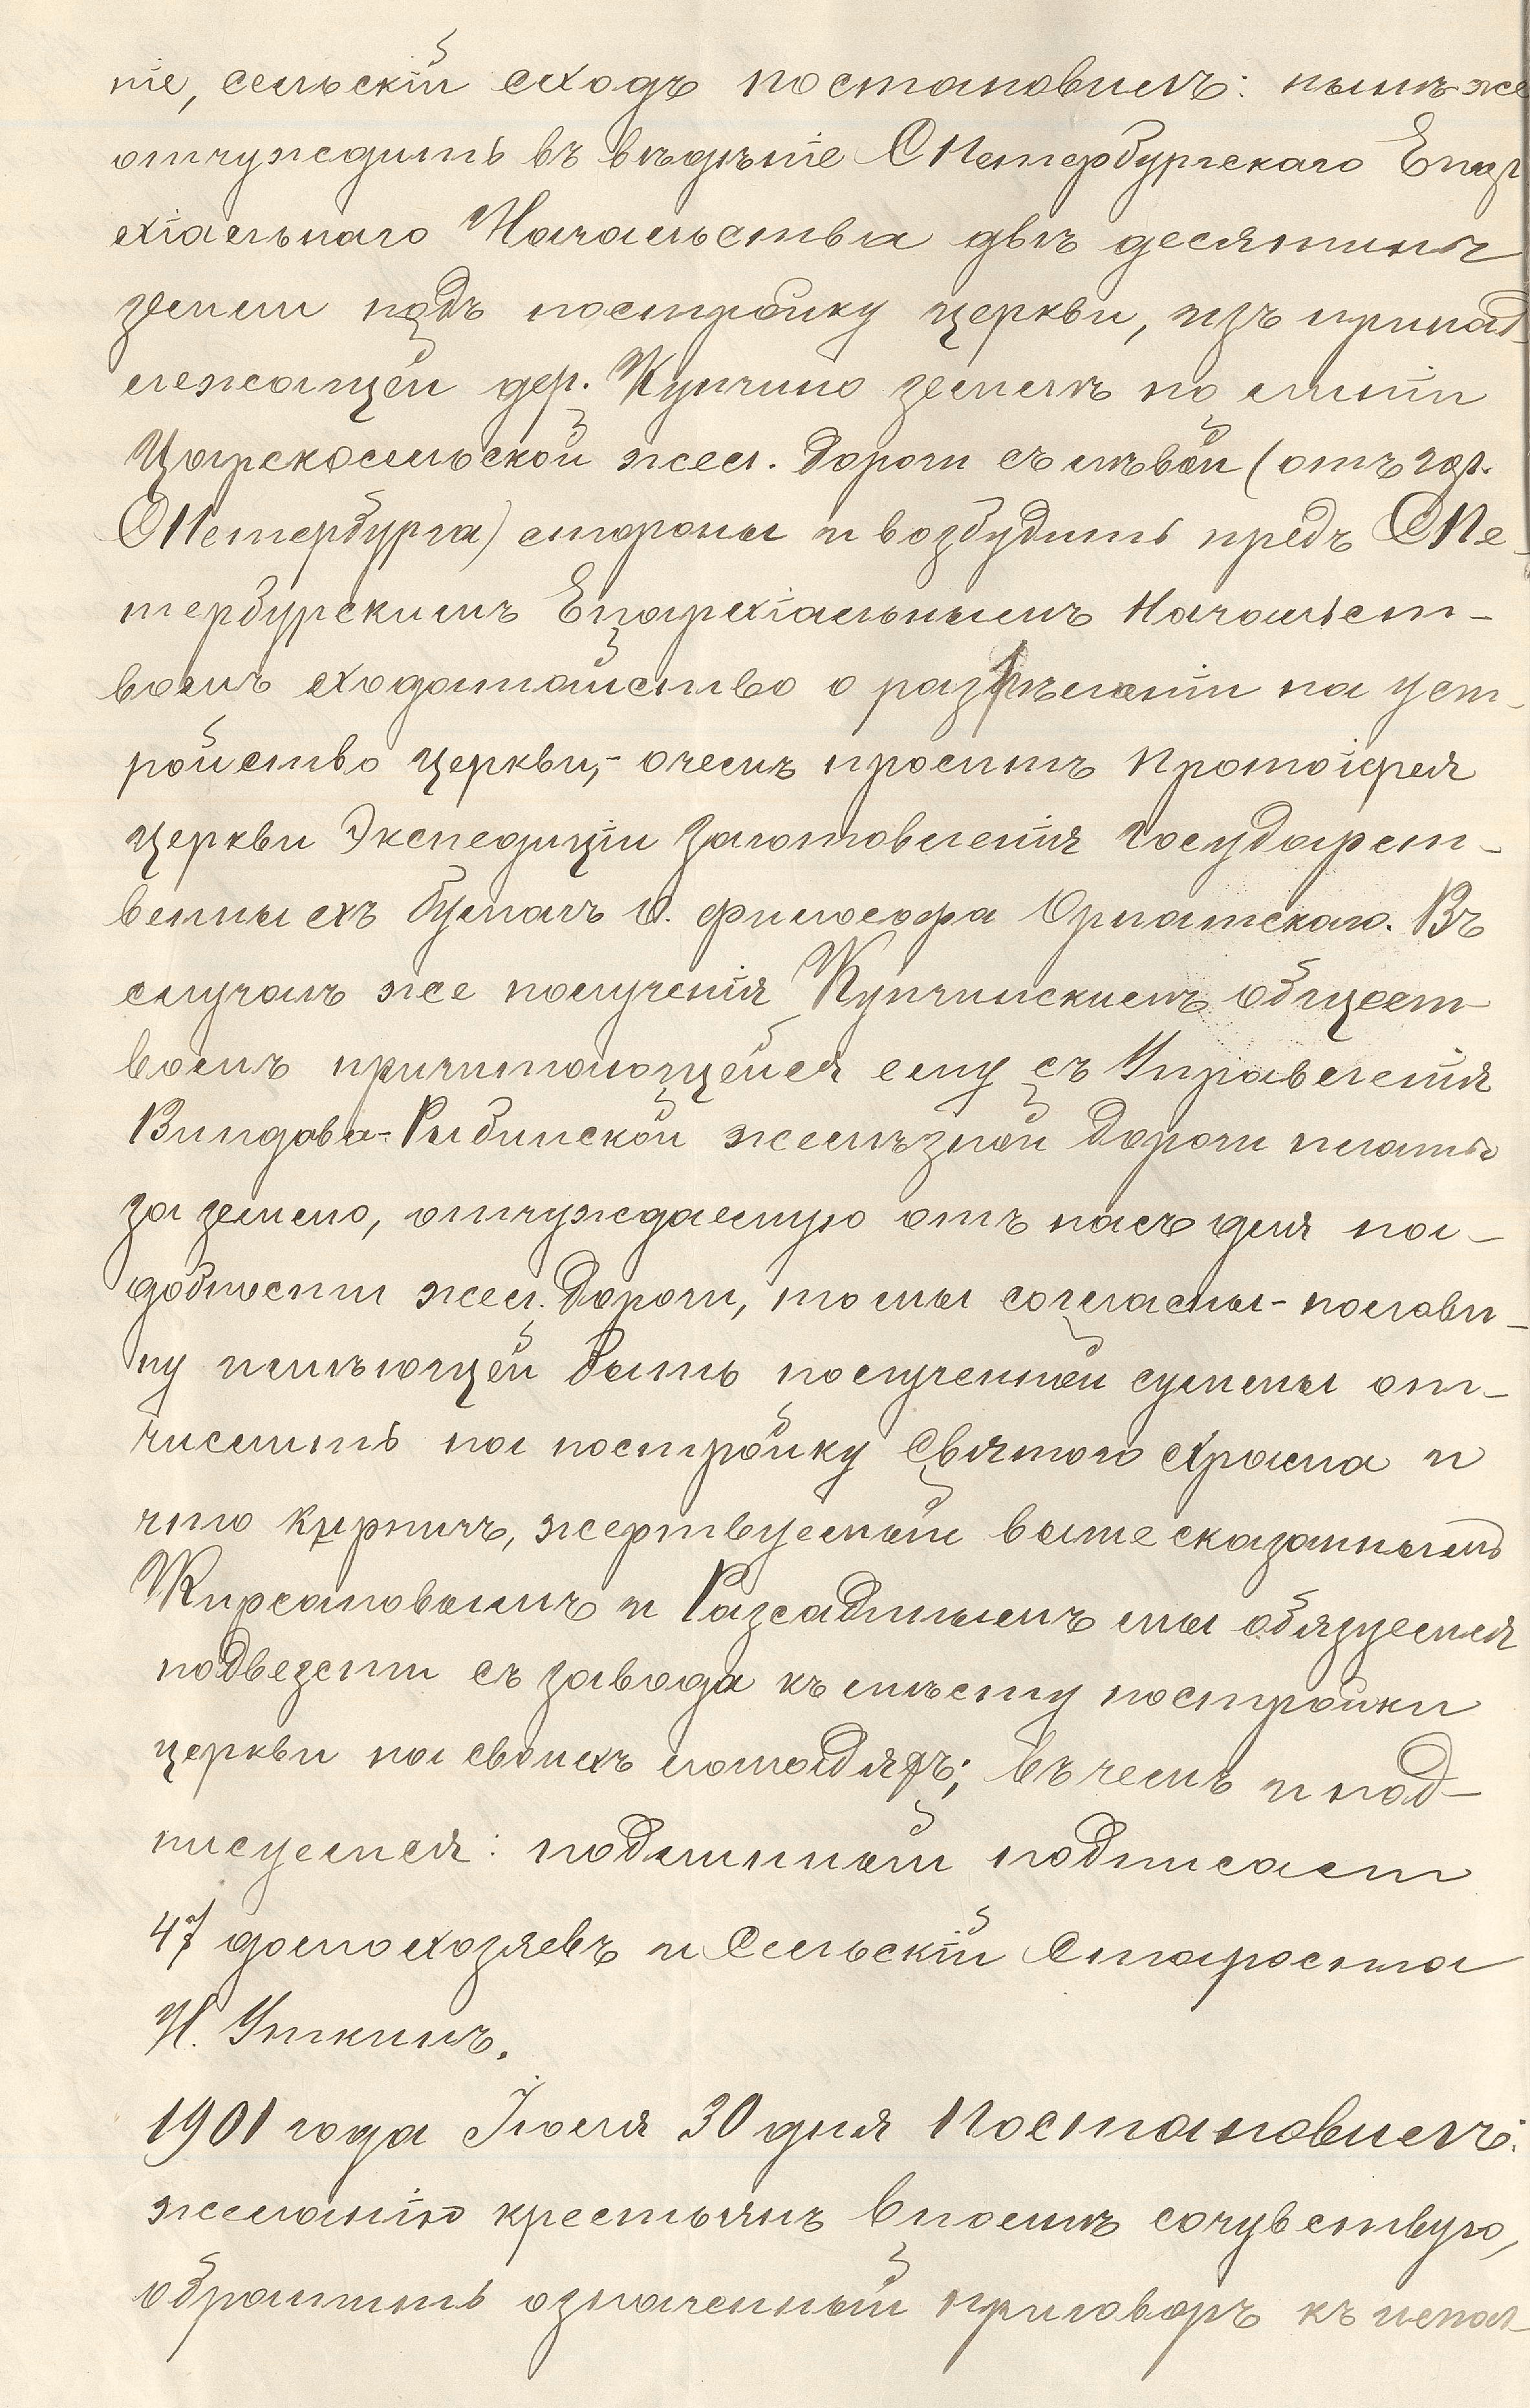 ніе, сельскій сходъ постановилъ: нынѣ же
отчуждить въ вѣдѣніе СПетербургскаго Епар
хіальнаго Начальства двѣ десятины
земли подъ постройку церкви, изъ принад-
лежащей дер. Купчино землѣ по линіи
Царскосельской жел. дороги съ лѣвой (отъ гор.
СПетербурга) стороны и возбудить предъ СПе-
тербурскимъ Епархіальнымъ Начальст-
вомъ ходатайство о разрѣшеніи на уст-
ройство церкви,- о чемъ просить Протоіерея
церкви Экспедиціи Заготовленія Государст-
венныхъ бумагъ О. Философа Орнатскаго. Въ
случаѣ же полученія Купчинскимъ общест-
вомъ причитающейся ему съ Управленія
Виндаво-Рыбинской желѣзной дороги платы
за землю, отчуждаемую отъ насъ для на-
добности жел. дороги, то мы согласны- полови-
ну имѣющей быть полученной суммы от-
числить на постройку Святого храма и
что кирпичъ, жертвуемый вышесказаннымъ
Кирсановымъ и Разсадинымъ мы обязуемся
подвезти съ завода къ мѣсту постройки
церкви на своихъ лошадяхъ; въ чемъ и под-
писуемся: подлинный подписали
47 домохозяевъ и Сельскій Староста
И. Уткинъ.
1901 года Іюля 30 дня Постановилъ:
желанію крестьянъ вполнѣ сочувствую,
обратить означенный приговоръ къ испол-